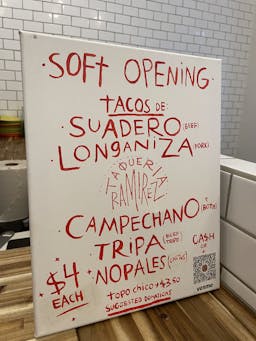 SOFT OPENING
TACOS DE:
SUADERO (BEEF)
LONGANIZA (PORK)
TAQUERIA
RAMIREZ
CAMPECHANO (BOTH)
TRIPA
NOPALES (CACTUS)
$4
EACH
CASH
OR
TOPO CHICO +$3.50
SUGGESTED DONATIONS
venmo